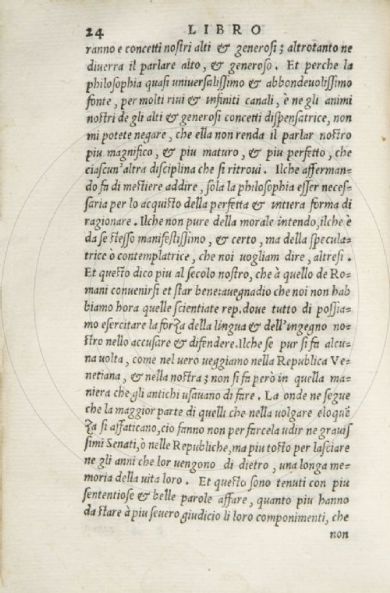 24 LIBRO
ranno e concetti nostri alti & generosi; altrotanto ne
diuerra il parlare alto, & generoso. Et perche la
philosophia quasi uniuersalissimo & abbondeuolissimo
fonte, per molti riui & infiniti canali, è ne gli animi
nostri de gli alti & generosi concetti dispensatrice, non
mi potete negare, che ella non renda il parlar nostro
piu magnifico, & piu maturo, & piu perfetto, che
ciascun'altra disciplina che si ritroui. Ilche afferman-
do fa di mestiere addire, sola la philosophia esser neces-
saria per lo acquisto della perfetta & intiera forma di
ragionare. Ilche non pure della morale intendo, ilche è
da se stesso manifestissimo, & certo, ma della specula-
trice ò contemplatrice, che noi uogliam dire, altresi.
Et questo dico piu al secolo nostro, che à quello de Ro-
mani conuenirsi et star bene: auegnadio che noi non hab
biamo hora quelle scientiate rep. doue tutto di possia-
mo esercitare la forza della lingua & dell'ingegno no-
stro nello accusare & difendere. Ilche se pur si fa alcu-
na uolta, come nel uero ueggiamo nella Republica Ve-
netiana, & nella nostra; non si fa però in quella ma-
niera che gli antichi usauano di fare. La onde ne segue
che la maggior parte di quelli che nella uolgare eloquē
za si affaticano, cio fanno non per farcela udir ne grauis
simi Senati, ò nelle Republiche, ma piu tosto per lasciare
ne gli anni che lor uengono di dietro, una longa me-
moria della uita loro. Et questo sono tenuti con piu
sententiose & belle parole affare, quanto piu hanno
da stare à piu seuero giudicio li loro componimenti, che
non